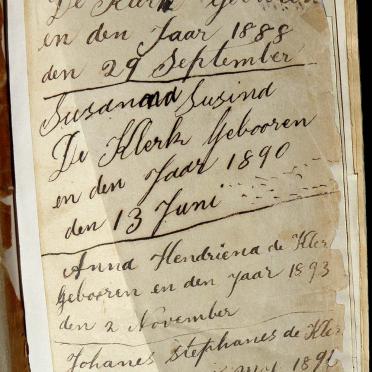 De Klerk Gebooren
en den Jaar 1888
den 29 September
Susanaa Susind
De Klerk Gebooren
en den Jaar 1890
den 13 Juni
Anna Hendriena de Kler
Gebooren en den Jaar 1893
den 2 November
Johanes Stephanes de Kle
189